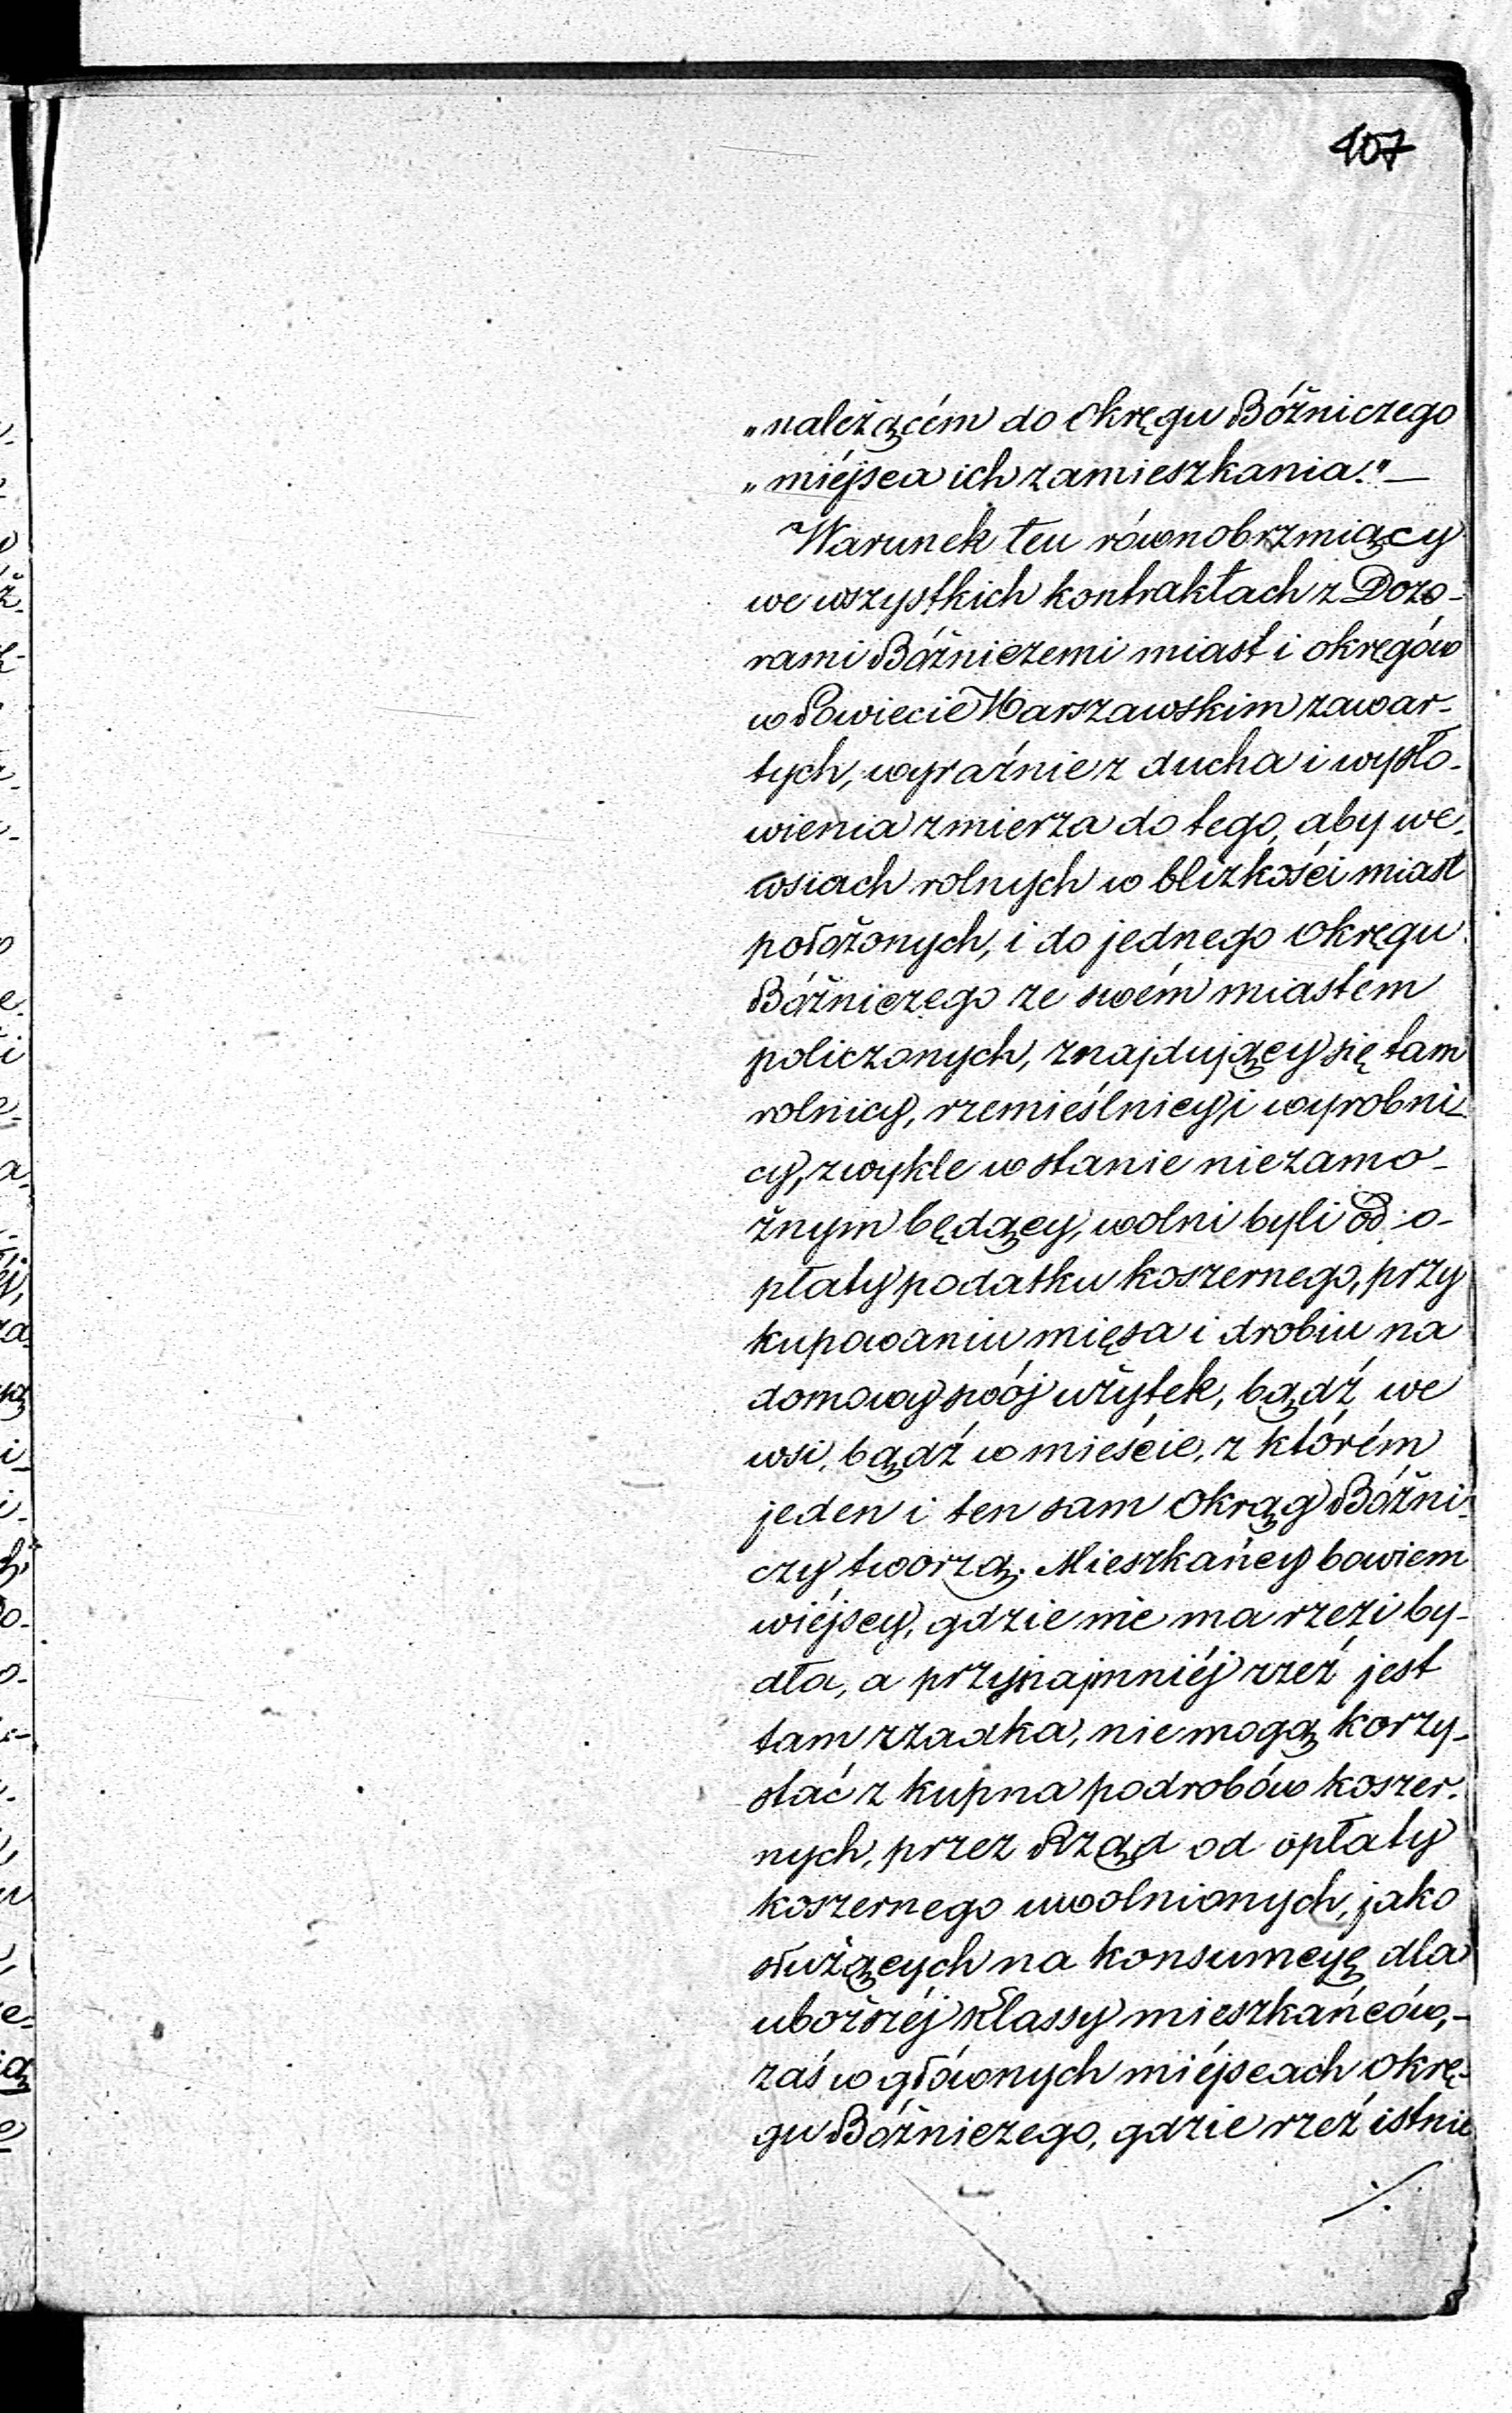 107
„należącém do Okręgu Bóżniczego
„miéjsca ich zamieszkania." —
Warunek ten równobrzmiący
we wszystkich kontraktach z Dozo-
rami Bóżniczemi miast i okręgów
w Powiecie Warszawskim zawar-
tych, wyraźnie z ducha i wysło-
wienia zmierza do tego, aby we
wsiach rolnych w blizkości miast
położonych, i do jednego Okręgu
Bóżniczego ze swém miastem
policzonych, znajdujący się tam
rolnicy, rzemieślnicy i wyrobni-
cy, zwykle w stanie niezamo-
żnym będący, wolni byli od o-
płaty podatku koszernego, przy
kupowaniu mięsa i drobiu na
domowy swój użytek, bądź we
wsi, bądź w mieście, z którém
jeden i ten sam Okrąg Bóżni-
czy tworzą. Mieszkańcy bowiem
wiéjscy, gdzie nie ma rzezi by-
dła, a przynajmniéj rzeź jest
tam rzadka, nie mogą korzy-
stać z kupna podrobów koszer-
nych, przez Rząd od opłaty
koszernego uwolnionych, jako
służących na konsumcyę dla
uboższéj klassy mieszkańców, -
zaś w głównych miéjscach Okrę-
gu Bóżniczego, gdzie rzeź istnie
./.